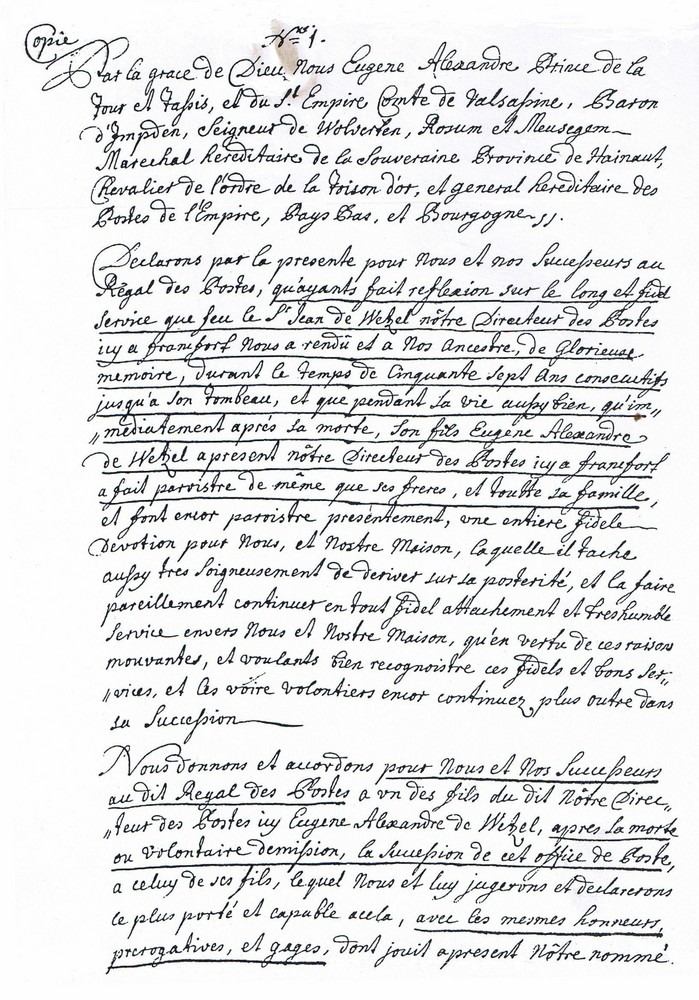 Copie
N.ro 1.
Par la grace de Dieu, Nous Eugene Alexandre Prince de la
Tour et Tassis, et du S.t Empire Comte de Valsassine, Baron
d'Impden, Seigneur de Wolverten, Rosum et Meusegem
Marechal hereditaire de la Souveraine Province de Hainaut,
Chevalier de l'ordre de la Toison d'or, et general hereditaire des
Postes de l'Empire, Pays Bas, et Bourgogne
Declarons par la presente pour Nous et nos Successeurs au
Régal des Postes, qu'ayants fait reflexion sur le long et fidel
service que feu le S.r Jean de Wetzel nôtre Directeur des Postes
icy a franfort Nous a rendu et a Nos Ancestre, de Glorieuse
memoire, durant le temps de Cinquante sept Ans consecutifs
jusqu'a son tombeau, et que pendant sa vie aussy bien, qu'im„
„mediatement aprés sa morte, Son fils Eugene Alexandre
de Wetzel apresent nôtre Directeur des Postes icy a franfort
a fait paroistre de même que ses freres, et toutte sa famille,
et font encor paroistre presentement, vne entiere fidele
Devotion pour Nous, et Nostre Maison, laquelle il tache
aussy tres soigneusement de deriver sur sa posterité, et la faire
pareillement continuer en tout fidel attachement et treshumble
Service envers Nous et Nostre Maison, qu'en vertu de ces raisons
mouvantes, et voulants bien recognoistre ces fidels et bons Ser„
„vices, et les voire volontiers encor continuez plus outre dans
sa Succession
Nous donnons et accordons pour Nous et Nos Successeurs
au dit Regal des Postes a vn des fils du dit Nôtre Direc„
„teur des Postes icy Eugene Alexandre de Wetzel, apres la morte
ou volontaire demission, la sucession de cet office de Poste,
a celuy de ses fils, lequel Nous et luy jugerons et declarerons
le plus porté et capable acela, avec les mesmes honneurs,
prerogatives, et gages, dont jouit apresent Nôtre nommé.